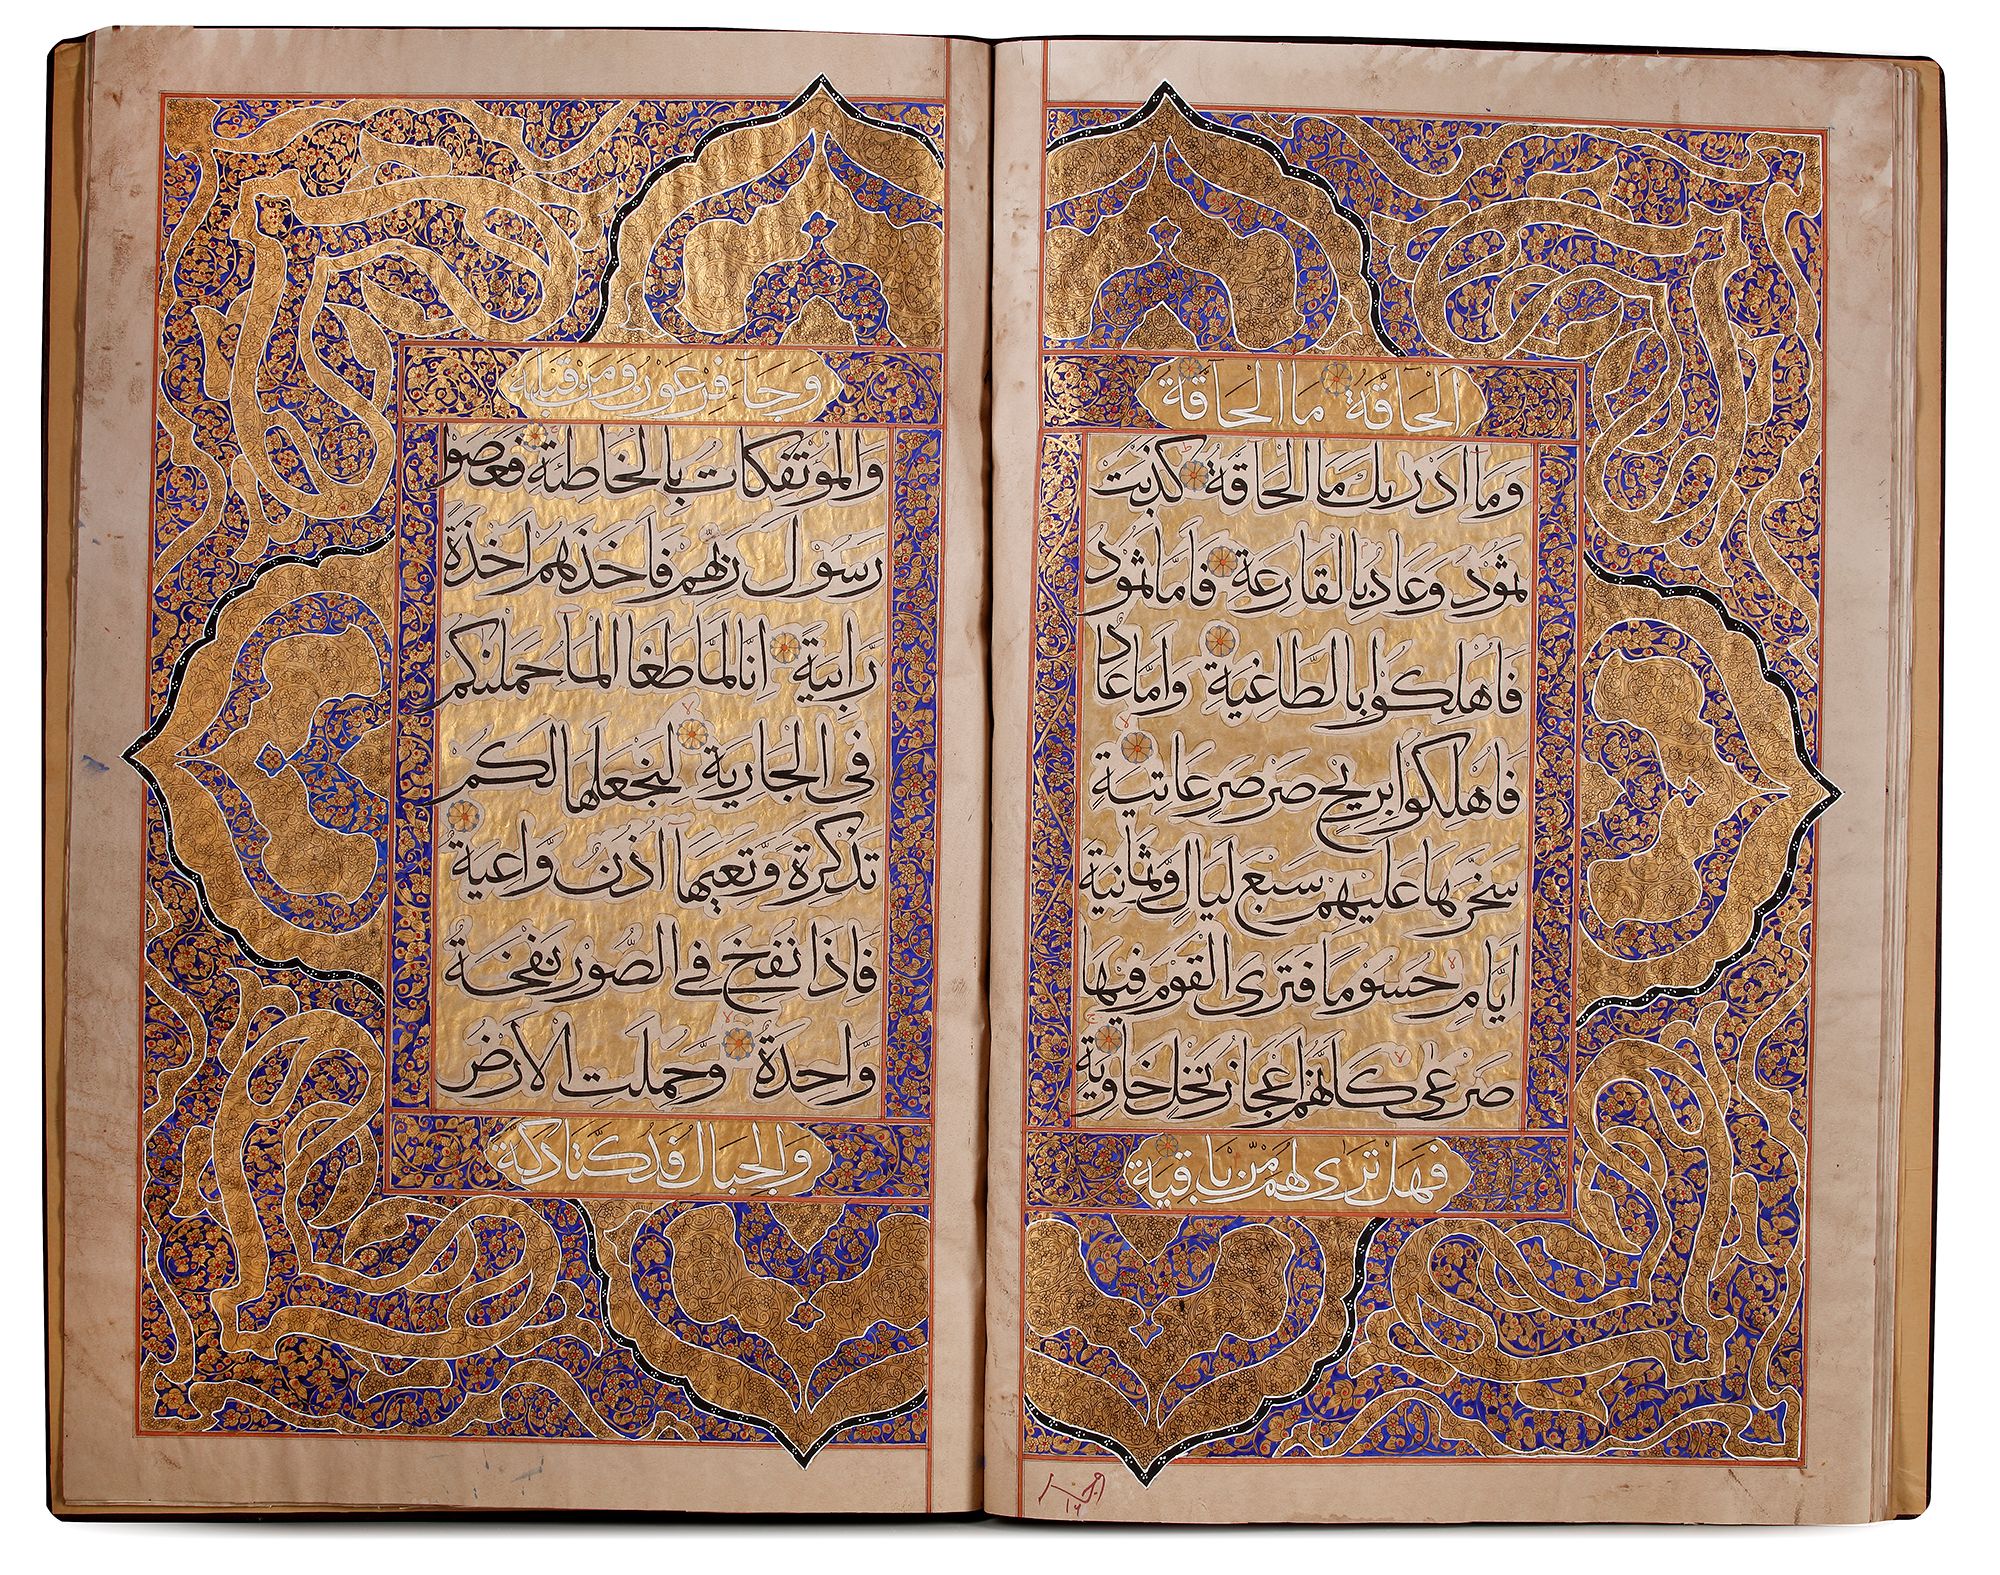 الحاقة ما الحاقة
وما ادريك ما الحاقة كذبت
ثمود وعاد بالقارعة فاما ثمود
فاهلكوا بالطاغية واما عاد
فاهلكوا بريح صرصر عاتية
سخرها عليهم سبع ليال وثمانية
ايام حسوما فترى القوم فيها
صرعى كانهم اعجاز نخل خاوية
فهل ترى لهم من باقية
وجآء فرعون ومن قبله
والموتفكات بالخاطئة فعصوا
رسول ربهم فاخذهم اخذة
رابية انا لما طغا المآء حملنكم
في الجارية لنجعلها لكم
تذكرة وتعيها آ اذن واعية
فاذا نفخ في الصور نفخة
واحدة وحملت الارض
والجبال فدكتا دكة